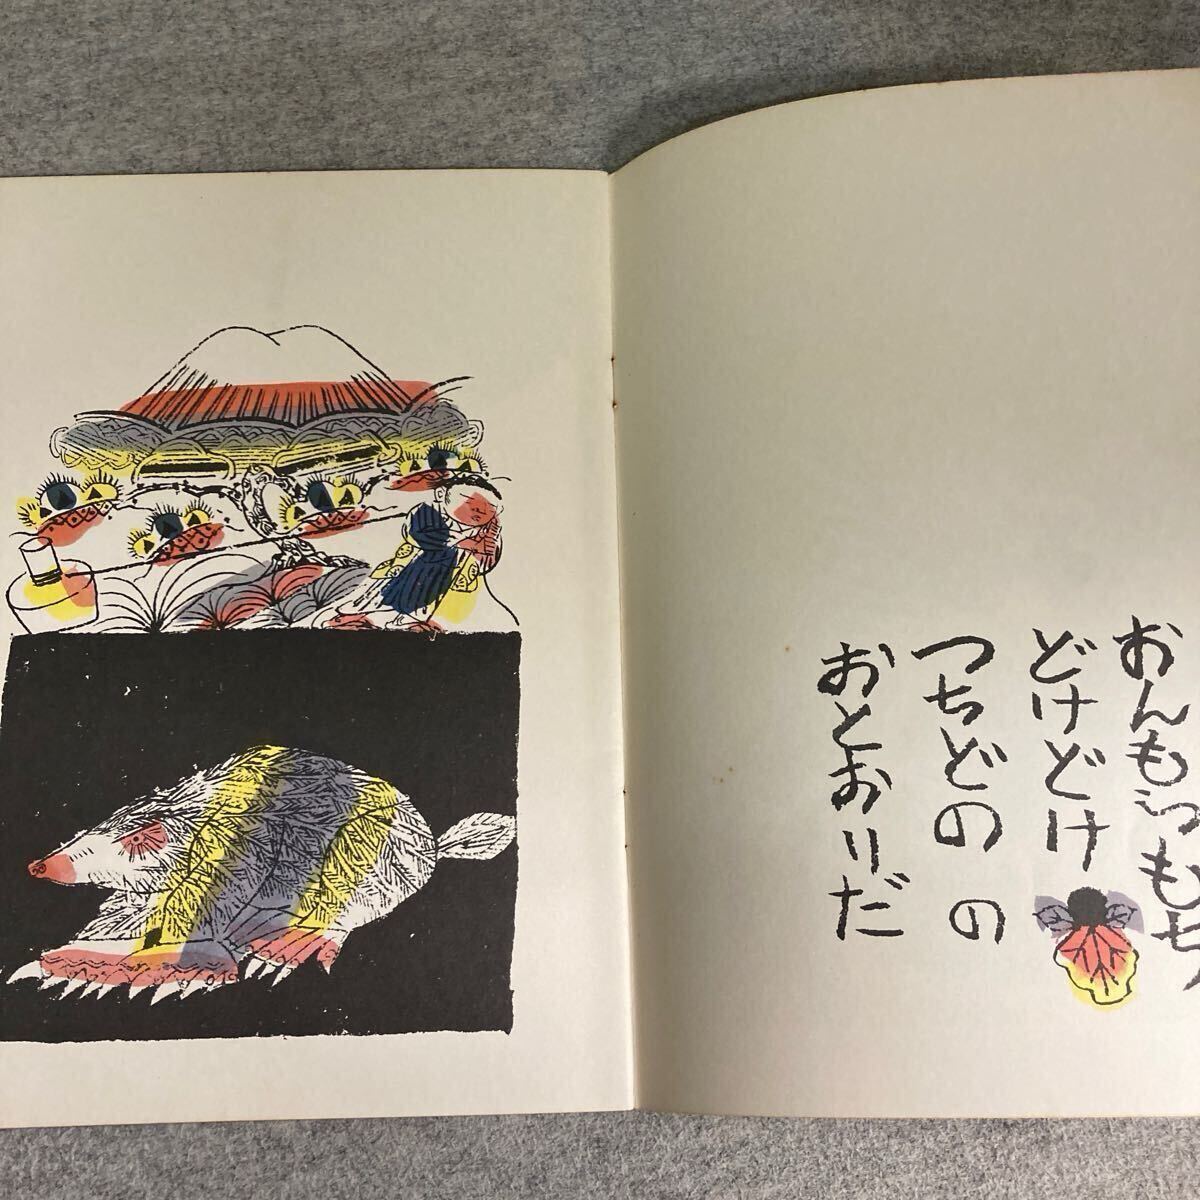 おんもらもち
どけどけ
つちどのの
おとおりだ